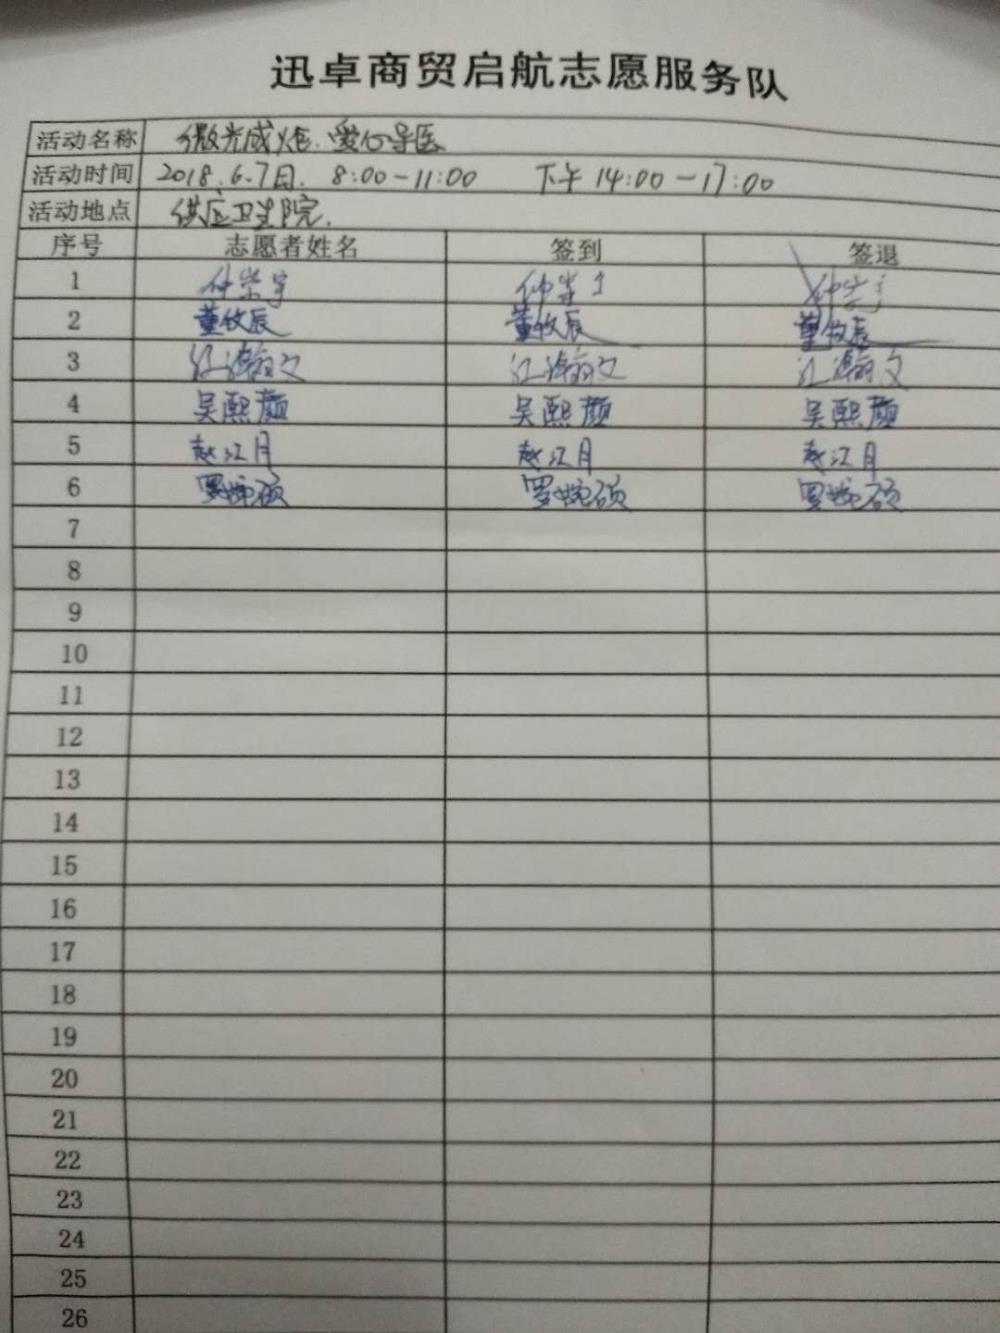 迅卓商贸启航志愿服务队
活动名称 微光成炬.爱心导医
活动时间 2018.6.7日. 8:00-11:00 下午14:00-17:00
活动地点 供应卫生院.
序号 志愿者姓名 签到 签退
1
2 董牧辰 董牧辰 董牧辰
3 江瀚文 江瀚文 江瀚文
4 吴熙颜 吴熙颜 吴熙颜
5 赵江月 赵江月 赵江月
6 罗婉硕 罗婉硕 罗婉硕
7
8
9
10
11
12
13
14
15
16
17
18
19
20
21
22
23
24
25
26